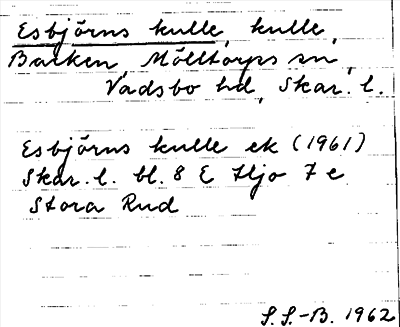 Esbjörns kulle, kulle,
Backen, Mölltorps sn,
Vadsbo hd, Skar. l.
Esbjörns kulle ek (1961)
Skar. l. bl. 8 E Hjo 7 e
Stora Rud
S.S.-B. 1962